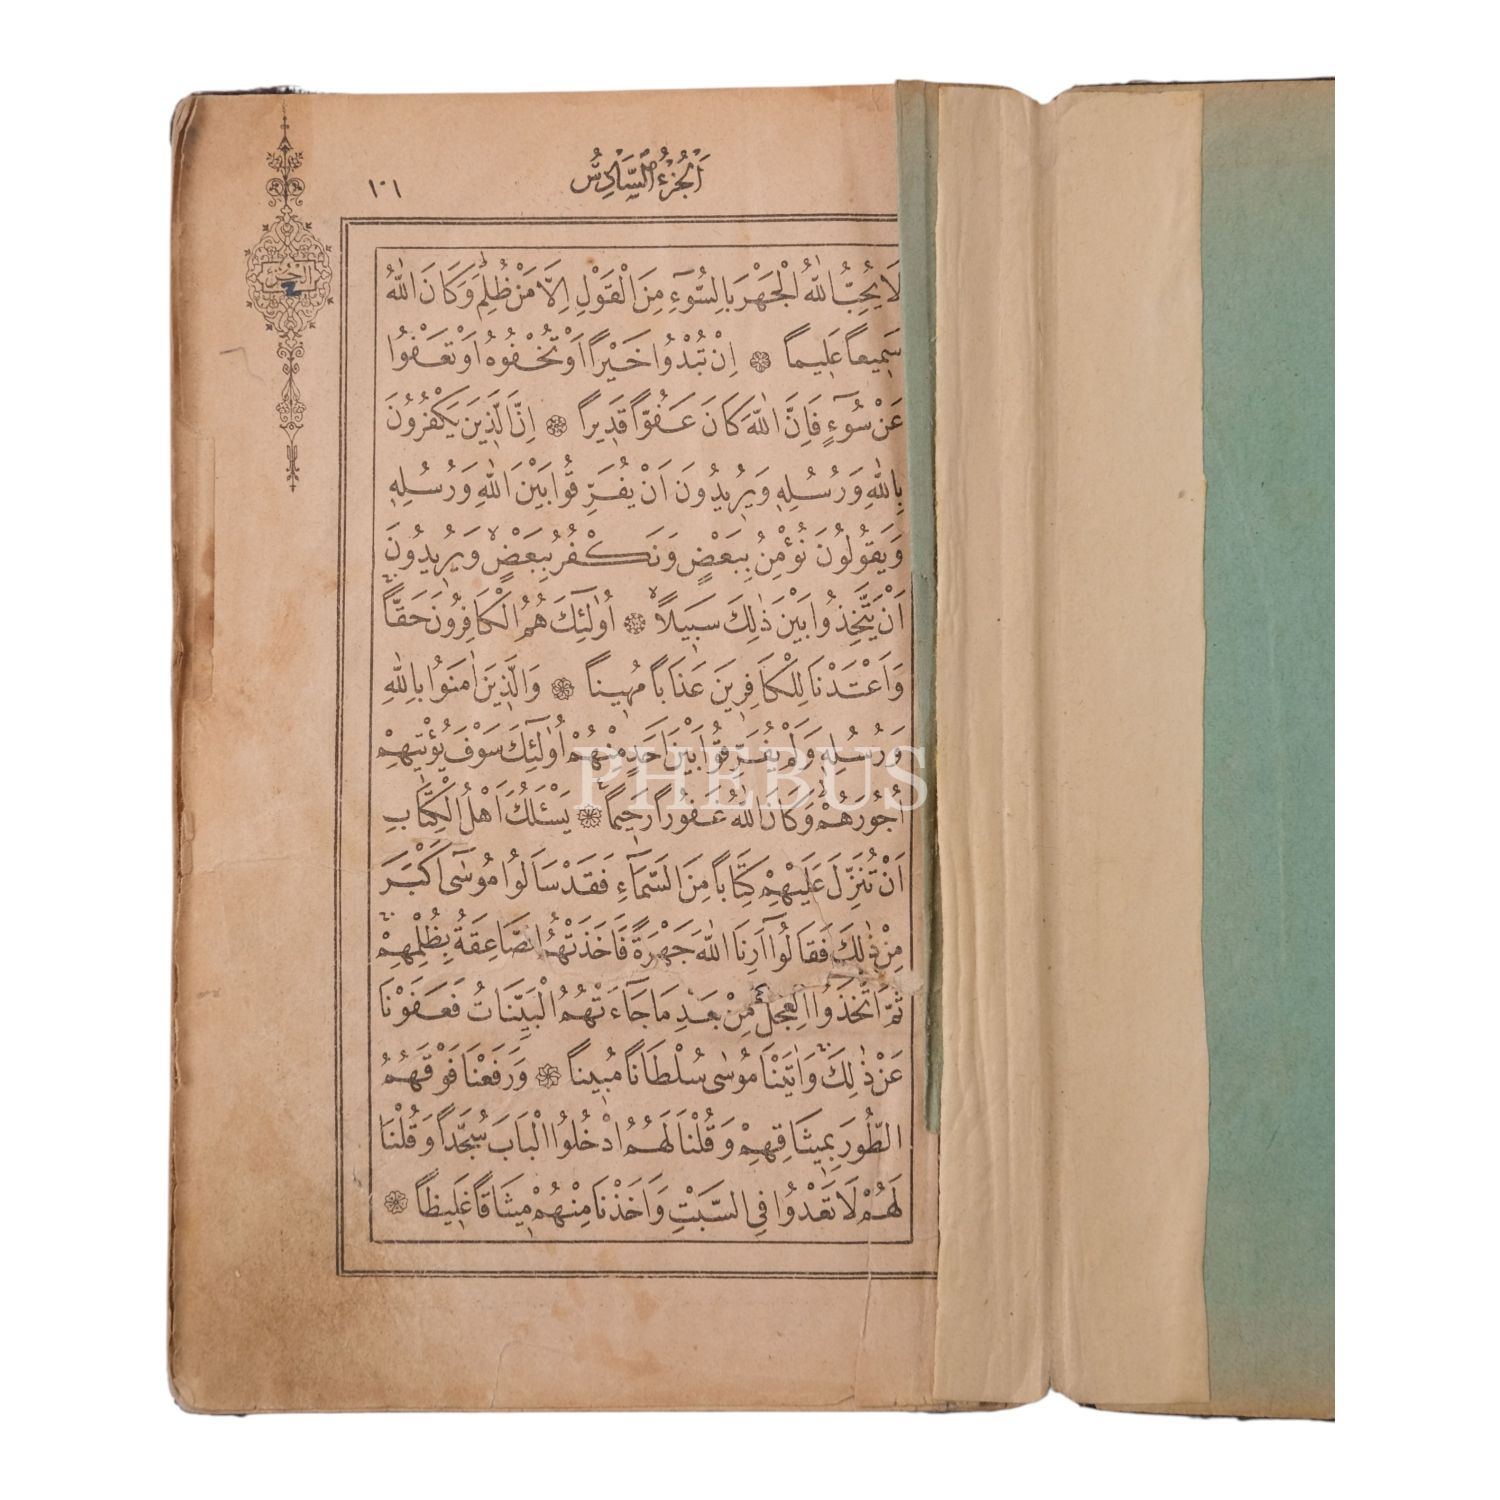 اَلْجُزْءُ السَّادِسُ
١٠١
الجزء
لَا يُحِبُّ اللّٰهُ الْجَهْرَ بِالسُّوٓءِ مِنَ الْقَوْلِ اِلَّا مَنْ ظُلِمَ وَكَانَ اللّٰهُ
سَمٖيعاً عَلٖيماً ۞ اِنْ تُبْدُوا خَيْراً اَوْ تُخْفُوهُ اَوْ تَعْفُوا
عَنْ سُوٓءٍ فَاِنَّ اللّٰهَ كَانَ عَفُوّاً قَدٖيراً ۞ اِنَّ الَّذٖينَ يَكْفُرُونَ
بِاللّٰهِ وَرُسُلِهٖ وَيُرٖيدُونَ اَنْ يُفَرِّقُوا بَيْنَ اللّٰهِ وَرُسُلِهٖ
وَيَقُولُونَ نُؤْمِنُ بِبَعْضٍ وَنَكْفُرُ بِبَعْضٍۙ وَيُرٖيدُونَ
اَنْ يَتَّخِذُوا بَيْنَ ذٰلِكَ سَبٖيلاًۙ ۞ اُولٰٓئِكَ هُمُ الْكَافِرُونَ حَقّاًۚ
وَاَعْتَدْنَا لِلْكَافِرٖينَ عَذَاباً مُهٖيناً ۞ وَالَّذٖينَ اٰمَنُوا بِاللّٰهِ
وَرُسُلِهٖ وَلَمْ يُفَرِّقُوا بَيْنَ اَحَدٍ مِنْهُمْ اُولٰٓئِكَ سَوْفَ يُؤْتٖيهِمْ
اُجُورَهُمْ وَكَانَ اللّٰهُ غَفُوراً رَحٖيماً ۞ يَسْـَٔلُكَ اَهْلُ الْكِتَابِ
اَنْ تُنَزِّلَ عَلَيْهِمْ كِتَاباً مِنَ السَّمَٓاءِ فَقَدْ سَاَلُوا مُوسٰٓى اَكْبَرَ
مِنْ ذٰلِكَ فَقَالُٓوا اَرِنَا اللّٰهَ جَهْرَةً فَاَخَذَتْهُمُ الصَّاعِقَةُ بِظُلْمِهِمْۚ
ثُمَّ اتَّخَذُوا الْعِجْلَ مِنْ بَعْدِ مَا جَٓاءَتْهُمُ الْبَيِّنَاتُ فَعَفَوْنَا
عَنْ ذٰلِكَۚ وَاٰتَيْنَا مُوسٰى سُلْطَاناً مُبٖيناً ۞ وَرَفَعْنَا فَوْقَهُمُ
الطُّورَ بِمٖيثَاقِهِمْ وَقُلْنَا لَهُمُ ادْخُلُوا الْبَابَ سُجَّداً وَقُلْنَا
لَهُمْ لَا تَعْدُوا فِي السَّبْتِ وَاَخَذْنَا مِنْهُمْ مٖيثَاقاً غَلٖيظاً ۞
PHEBUS